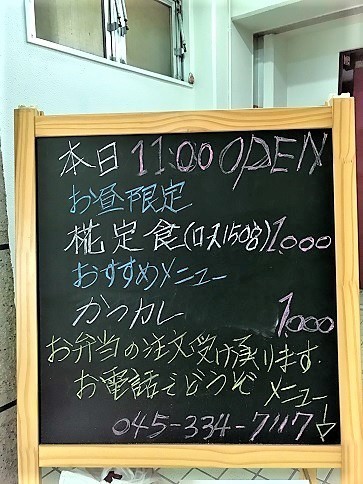 本日 11:00 OPEN
お昼限定
椛定食(ロース150g) 1,000
おすすめメニュー
かつカレー 1,000
お弁当の注文受け承ります
お電話をどうぞ
メニュー
045-334-7117